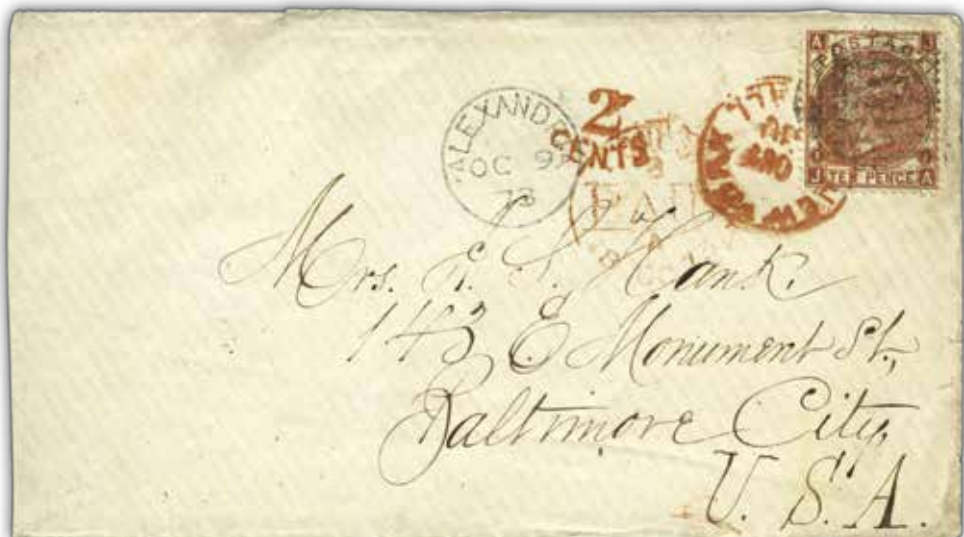 A J
POSTAGE
O O
J TEN PENCE A
ALEXAND
OC 9
73
2
CENTS
PAID
NEW YORK
Mrs. R. S. Hank.
143 E Monument St.,
Baltimore City,
U. S. A.